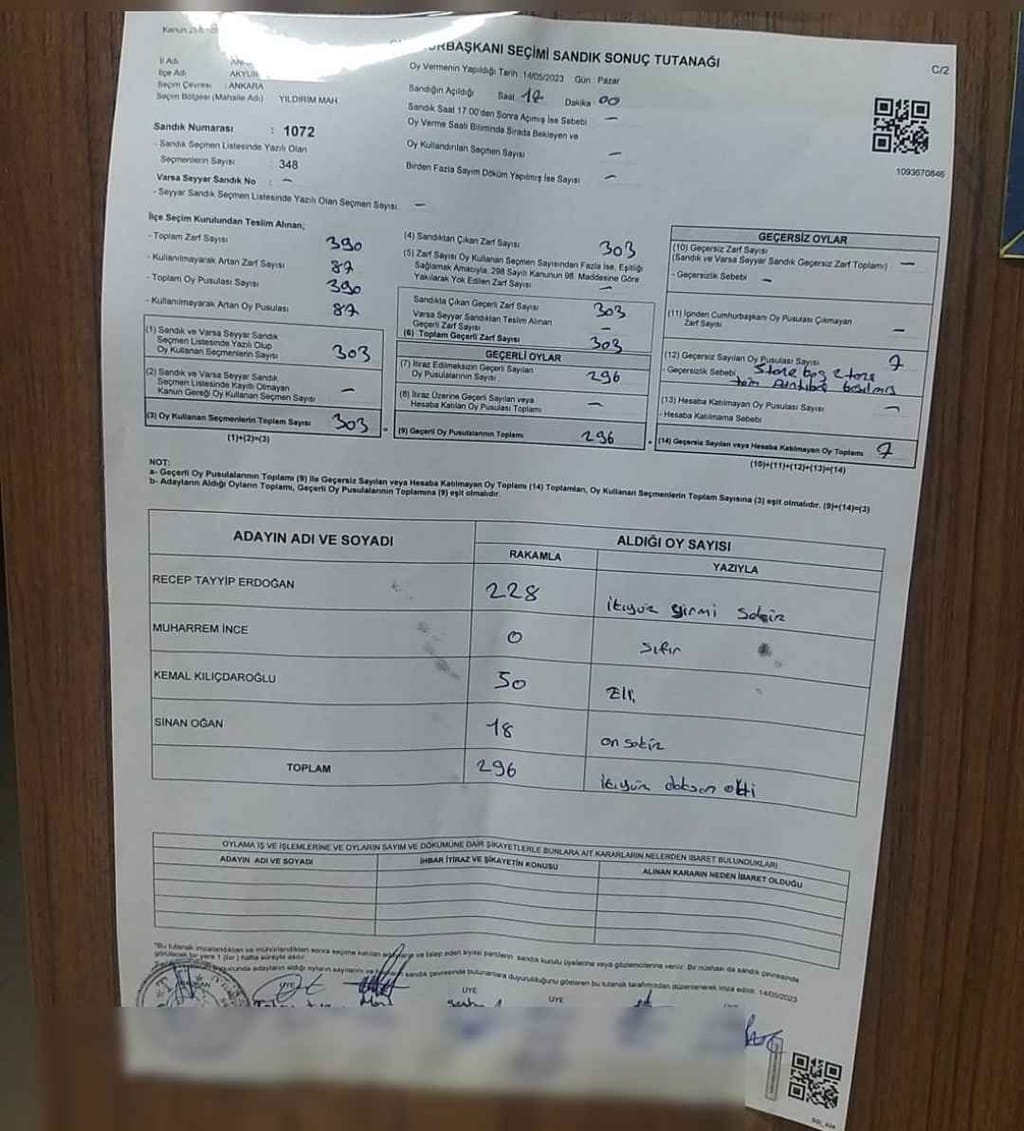 CUMHURBAŞKANI SEÇİMİ SANDIK SONUÇ TUTANAĞI
C/2
İl Adı
İlçe Adı AKYURT
Seçim Çevresi : ANKARA
Seçim Bölgesi (Mahalle Adı) YILDIRIM MAH
Oy Vermenin Yapıldığı Tarih 14/05/2023 Gün Pazar
Sandığın Açıldığı Saat 17 Dakika 00
Sandık Saat 17.00'den Sonra Açılmış İse Sebebi —
Oy Verme Saati Bitiminde Sırada Bekleyen ve
Oy Kullandırılan Seçmen Sayısı —
Birden Fazla Sayım Döküm Yapılmış İse Sayısı —
1093670846
Sandık Numarası : 1072
- Sandık Seçmen Listesinde Yazılı Olan
Seçmenlerin Sayısı : 348
Varsa Seyyar Sandık No : —
- Seyyar Sandık Seçmen Listesinde Yazılı Olan Seçmen Sayısı —
İlçe Seçim Kurulundan Teslim Alınan;
- Toplam Zarf Sayısı 390
- Kullanılmayarak Artan Zarf Sayısı 87
- Toplam Oy Pusulası Sayısı 390
- Kullanılmayarak Artan Oy Pusulası 87
(1) Sandık ve Varsa Seyyar Sandık
Seçmen Listesinde Yazılı Olup
Oy Kullanan Seçmenlerin Sayısı 303
(2) Sandık ve Varsa Seyyar Sandık
Seçmen Listesinde Kayıtlı Olmayan
Kanun Gereği Oy Kullanan Seçmen Sayısı —
(3) Oy Kullanan Seçmenlerin Toplam Sayısı 303
(1)+(2)=(3)
(4) Sandıktan Çıkan Zarf Sayısı 303
(5) Zarf Sayısı Oy Kullanan Seçmen Sayısından Fazla İse, Eşitliği
Sağlamak Amacıyla, 298 Sayılı Kanunun 98. Maddesine Göre
Yakılarak Yok Edilen Zarf Sayısı —
Sandıkta Çıkan Geçerli Zarf Sayısı 303
Varsa Seyyar Sandıktan Teslim Alınan
Geçerli Zarf Sayısı —
(6) Toplam Geçerli Zarf Sayısı 303
GEÇERLİ OYLAR
(7) İtiraz Edilmeksizin Geçerli Sayılan
Oy Pusulasının Sayısı 296
(8) İtiraz Üzerine Geçerli Sayılan veya
Hesaba Katılan Oy Pusulası Toplamı —
(9) Geçerli Oy Pusulalarının Toplamı 296
GEÇERSİZ OYLAR
(10) Geçersiz Zarf Sayısı
(Sandık ve Varsa Seyyar Sandık Geçersiz Zarf Toplamı) —
- Geçersizlik Sebebi —
(11) İçinden Cumhurbaşkanı Oy Pusulası Çıkmayan
Zarf Sayısı —
(12) Geçersiz Sayılan Oy Pusulası Sayısı 7
- Geçersizlik Sebebi
(13) Hesaba Katılmayan Oy Pusulası Sayısı —
- Hesaba Katılmama Sebebi
(14) Geçersiz Sayılan veya Hesaba Katılmayan Oy Toplamı 7
(10)+(11)+(12)+(13)=(14)
NOT:
a- Geçerli Oy Pusulalarının Toplamı (9) ile Geçersiz Sayılan veya Hesaba Katılmayan Oy Toplamı (14) Toplamları, Oy Kullanan Seçmenlerin Toplam Sayısına (3) eşit olmalıdır. (9)+(14)=(3)
b- Adayların Aldığı Oyların Toplamı, Geçerli Oy Pusulalarının Toplamına (9) eşit olmalıdır.
ADAYIN ADI VE SOYADI ALDIĞI OY SAYISI
RAKAMLA YAZIYLA
RECEP TAYYİP ERDOĞAN 228 ikiyüz yirmi sekiz
MUHARREM İNCE 0 sıfır
KEMAL KILIÇDAROĞLU 50 Elli
SİNAN OĞAN 18 on sekiz
TOPLAM 296 ikiyüz doksan altı
OYLAMA İŞ VE İŞLEMLERİNE VE OYLARIN SAYIM VE DÖKÜMÜNE DAİR ŞİKAYETLERLE BUNLARA AİT KARARLARIN NELERDEN İBARET BULUNDUKLARI
ADAYIN ADI VE SOYADI İHBAR İTİRAZ VE ŞİKAYETİN KONUSU ALINAN KARARIN NEDEN İBARET OLDUĞU
ÜYE
ÜYE